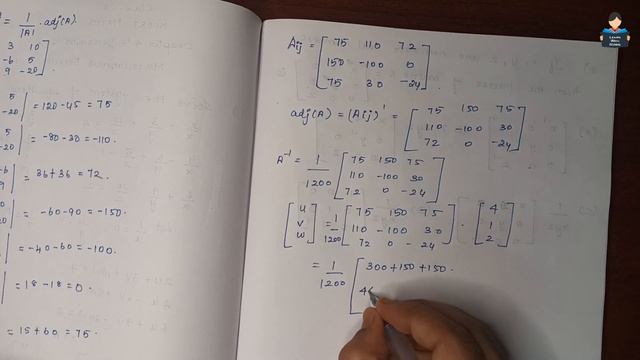 = 1/|A| . adj(A).
3 10
-6 5
9 -20].
5
-20| = 120-45 = 75
5
-20| = -80-30 = -110.
-6
9| = 36+36 = 72.
= -60-90 = -150.
= -40-60 = -100.
= 18-18 = 0.
= 15+60 = 75.
Aij = [75 110 72
150 -100 0
75 30 -24].
adj(A) = (Aij)' = [75 150 75
110 -100 30
72 0 -24]
A⁻¹ = 1/1200 [75 150 75
110 -100 30
72 0 -24]
[u
v
w] = 1/1200 [75 150 75
110 -100 30
72 0 -24] . [4
1
2]
= 1/1200 [300+150+150.